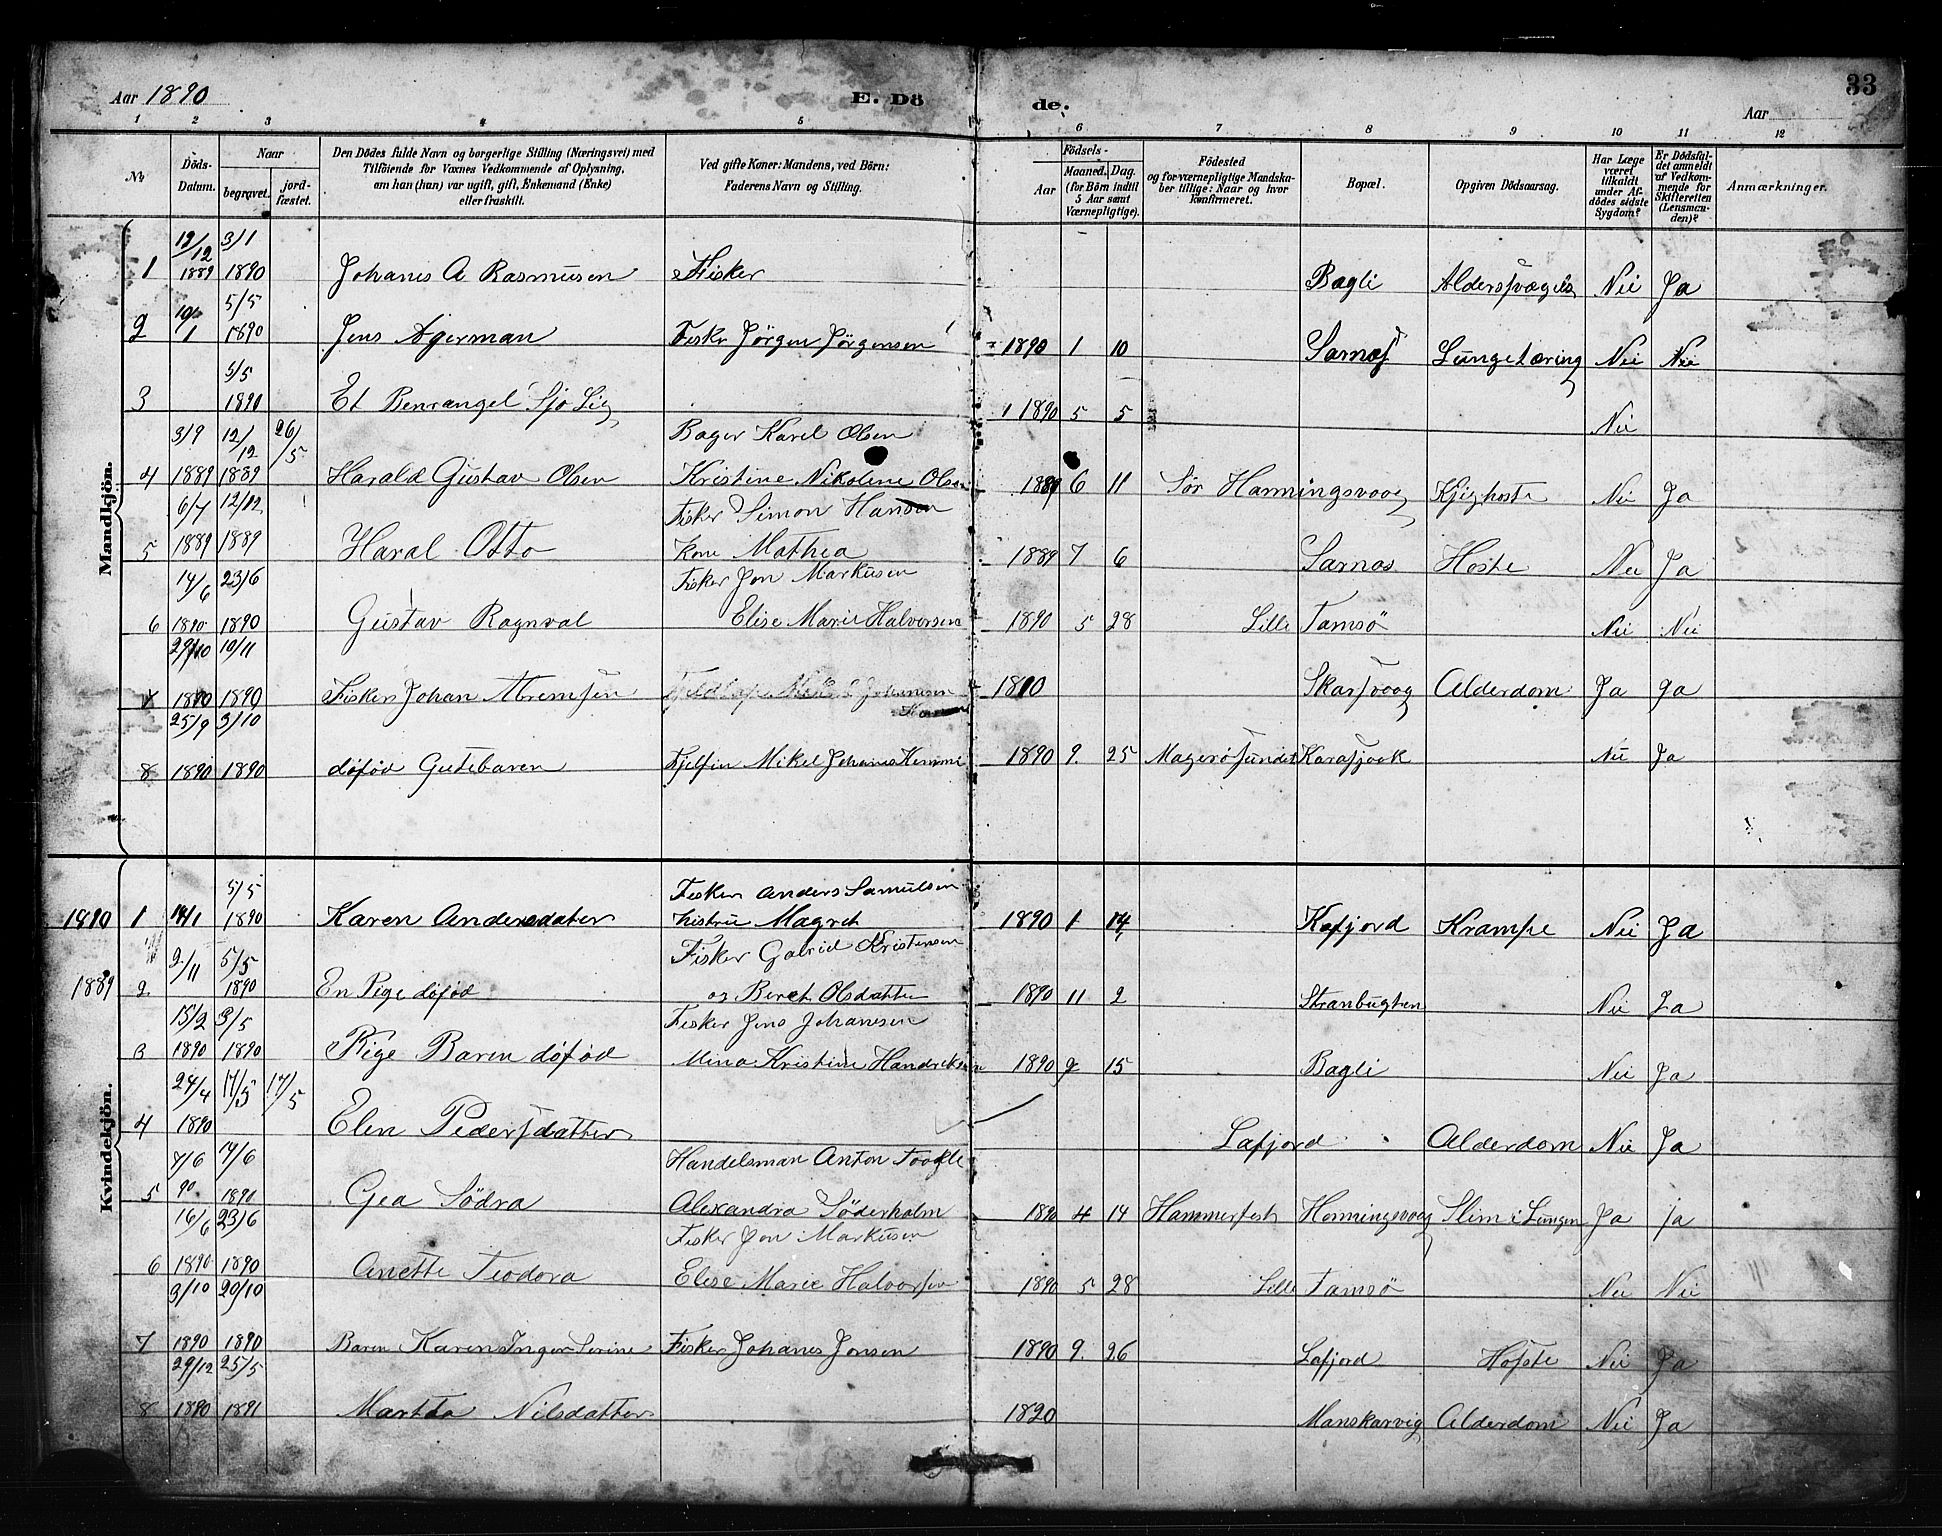 33
Aar 1890 E. Dö de. Aar
1 2 3 4 5 6 7 8 9 10 11 12
No
Döds-Datum.
Naar
begravet.
jord-fæstet.
Den Dödes fulde Navn og borgerlige Stilling (Næringsvei) med
Tilföiende for Voxnes Vedkommende af Oplysning,
om han (hun) var ugift, gift, Enkemand (Enke)
eller fraskilt.
Ved gifte Koner: Mandens, ved Börn:
Faderens Navn og Stilling.
Födsels-
Aar
Maaned. Dag.
(for Börn indtil
5 Aar samt
Værnepligtige).
Födested
og for værnepligtige Mandska-
ber tillige: Naar og hvor
konfirmeret.
Bopæl.
Opgiven Dödsaarsag.
Har Læge
været
tilkaldt
under Af-
dödes sidste
Sygdom?
Er Dödsfal-
det anmeldt
af Vedkom-
mende for
Skifteretten
(Lensman-
den)?
Anmærkninger.
Mandkjön.
12/12 3/1
1 1889 1890 Johanis A Rasmusen Fisker Bagli Nei Ja
5/5
2 1 1890 Jens Agerman Fisker Jørgen Jørgensen 1890 1 10 Sarnes Lungetæring Nei Nei
5/5
3 1890 Et Benrangel Sjø Lig 1890 5 5 Nei
3/9 12/12 26/5 Bager Karel Olsen
4 1889 1889 Harald Gustav Olsen Kristine Nikoline Olsen 1889 6 11 Sør Hanningsvoog Kjighoste Nei Ja
6/7 12/12 Fisker Simon Hansen
5 1889 1889 Haral Otto Kone Mathea 1889 7 6 Sarnes Hoste Nei Ja
14/6 23/6 Fisker Jon Markusen
6 1890 1890 Gustav Ragnval Elise Marie Halvorsen 1890 5 28 Lille Tamsø Nei Nei
29/10 10/11
7 1890 1890 Fisker Johan Johanesen 1810 Skarsvoog Alderdom Ja ja
25/9 3/10
8 1890 1890 døfød Gutebaren Fjelfin Mikel Johanes Kemmi 1890 9. 25 Magerøsundet Karasjock Nei Ja
Kvindekjön.
5/5 Fisker Anders Samulsen
1890 1 14/1 1890 Karen Andersdater Magret 1890 1 14 Kafjord Krampe Nei Ja
2/11 5/5 Fisker Gabriel Kristensen
1889 2 1890 En Pige døfød og Beret Olsdatter 1890 11 2 Stranbugten Nei Ja
15/2 3/5 Fisker Jens Johanesen
3 1890 1890 Pige Baren døfød Mina Kristine Handriksen 1890 2 15 Bagli Nei Ja
24/4 17/5 17/5
4 1890 Elen Pedersdatter Lafjord Alderdom Nei Ja
7/6 17/6 Handelsman Anton
5 90 1890 Gea Sødra Alexandra Søderholm 1890 4 14 Hammerfest Honningsvoog Slim i Lungen Ja ja
16/6 23/6 Fisker Jon Markusen
6 1890 1890 Anette Teodora Elise Marie Halvorsen 1890 5 28 Lille Tamsø Nei Nei
3/10 20/10
7 1890 1890 Baren Karen Inger Serine Fisker Johanes Jonsen 1890 9. 26 Lafjord Hoste Nei Ja
29/12 25/5
8 1890 1891 Martta Nilsdatter 1820 Manskarvig Alderdom Nei Ja